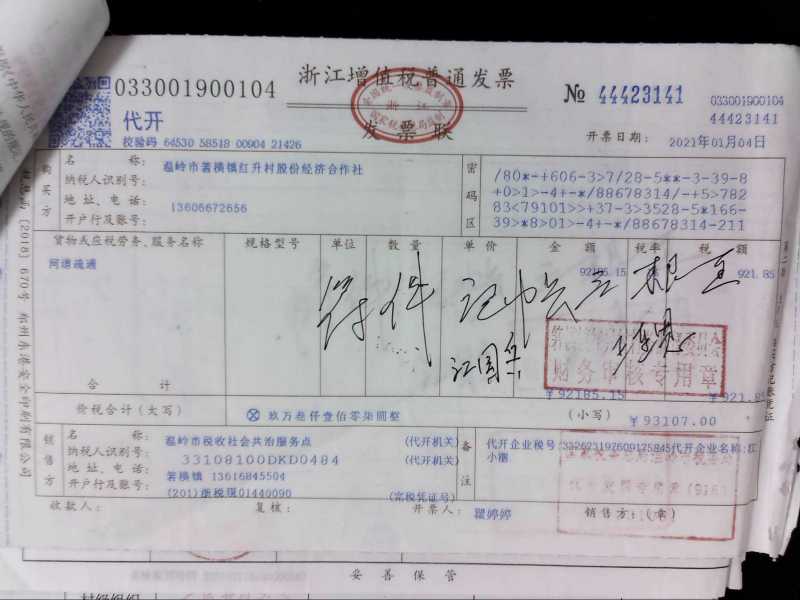 033001900104
浙江增值税普通发票
№ 44423141
033001900104
44423141
代开
发票联
校验码 64530 58518 00904 21426
开票日期： 2021年01月04日
购买方
名 称： 温岭市箬横镇红升村股份经济合作社
纳税人识别号：
地 址、电 话： 13606672656
开户行及账号：
密码区
/80*-+606-3>7/28-5**-3-39-8
+0>1>-4+-*/88678314/-+5>782
83<79101>>+37-3>3528-5*166-
39>*8>01>-4+-*/88678314-211
货物或应税劳务、服务名称 规格型号 单位 数量 单价 金额 税率 税额
河道疏通 92185.15 921.85
江国兵
财务审核专用章
合 计 ￥92185.15 ￥921.85
价税合计（大写） ⊗ 玖万叁仟壹佰零柒圆整 （小写） ￥93107.00
销售方
名 称： 温岭市税收社会共治服务点 (代开机关)
纳税人识别号： 33108100DKD0484 (代开机关)
地 址、电 话： 箬横镇 13616845504
开户行及账号： (201)浙税现01440090 (完税凭证号)
备注
代开企业税号:332623197609175845代开企业名称:江
小丽
收款人： 复核： 开票人： 瞿婷婷 销售方：（章）
[2018] 670号
妥善保管
村级组织